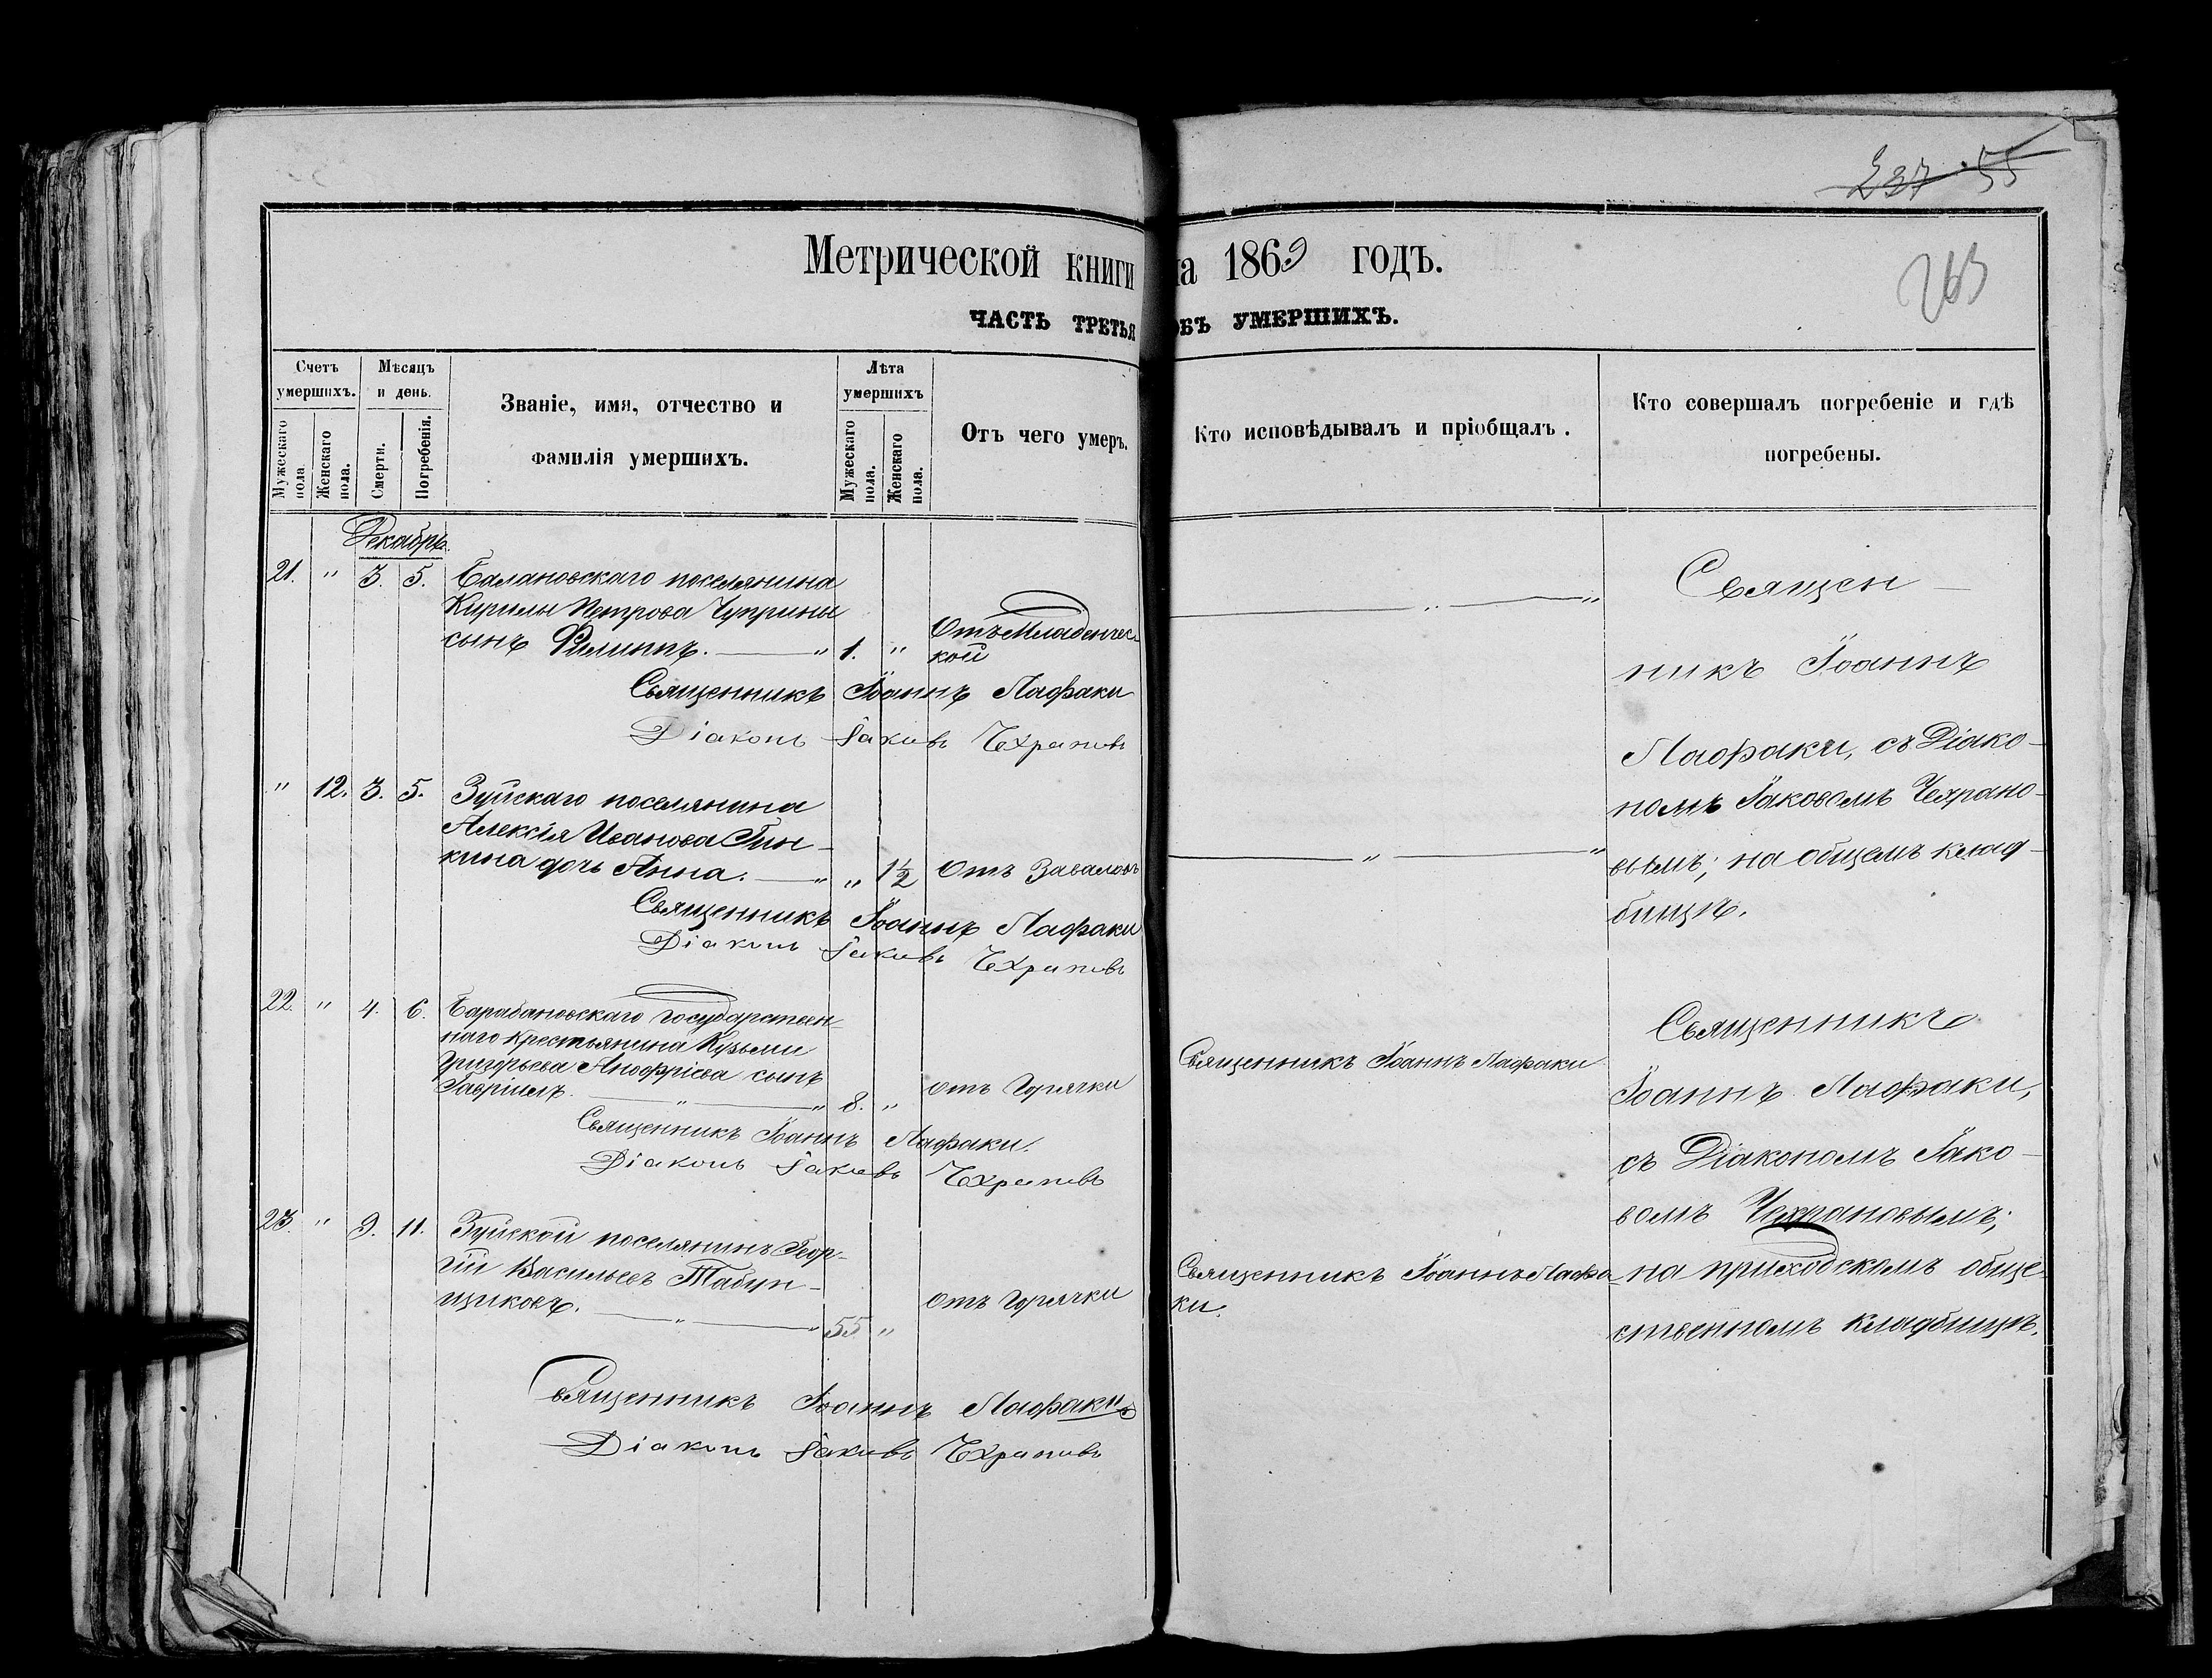 237 55
263
Метрической книги на 1869 годъ.
ЧАСТЬ ТРЕТЬЯ ОБЪ УМЕРШИХЪ.
Счетъ умершихъ.
Мужескаго пола.
Женскаго пола.
Мѣсяцъ и день.
Смерти.
Погребенія.
Званіе, имя, отчество и
фамилія умершихъ.
Лѣта умершихъ
Мужескаго пола.
Женскаго пола.
Отъ чего умеръ.
Кто исповѣдывалъ и пріобщалъ.
Кто совершалъ погребеніе и гдѣ
погребены.
Декабрь.
21. " 3. 5. Балановскаго поселянина
Кирилы Петрова Чуприны
сынъ Филиппъ. " 1. " Отъ Младенчес-
кой
Священникъ Іоаннъ Лафаки
Діаконъ Іаковъ Чехрановъ
Священ-
никъ Іоаннъ
Лафаки, съ Діако-
номъ Іаковомъ Чехрано-
вымъ; на общемъ клад-
бищѣ.
" 12. 3. 5. Зуйскаго поселянина
Алексія Иванова Гин-
кина дочь Анна. " " 1½ Отъ Заваловъ
Священникъ Іоаннъ Лафаки
Діаконъ Іаковъ Чехрановъ
22. " 4. 6. Барабановскаго государствен-
наго крестьянина Кузьмы
Григорьева Анофріева сынъ
Гавріилъ. " " 8. " отъ Горячки
Священникъ Іоаннъ Лафаки
Священникъ Іоаннъ Лафаки.
Діаконъ Іаковъ Чехрановъ
Священникъ
Іоаннъ Лафаки,
съ Діакономъ Іако-
вомъ Чехрановымъ;
на приходскомъ обще-
ственномъ кладбищѣ.
23. " 9. 11. Зуйской поселянинъ Геор-
гій Васильевъ Табун-
щиковъ. " " 55 " отъ Горячки
Священникъ Іоаннъ Лафа-
ки.
Священникъ Іоаннъ Лафаки
Діаконъ Іаковъ Чехрановъ